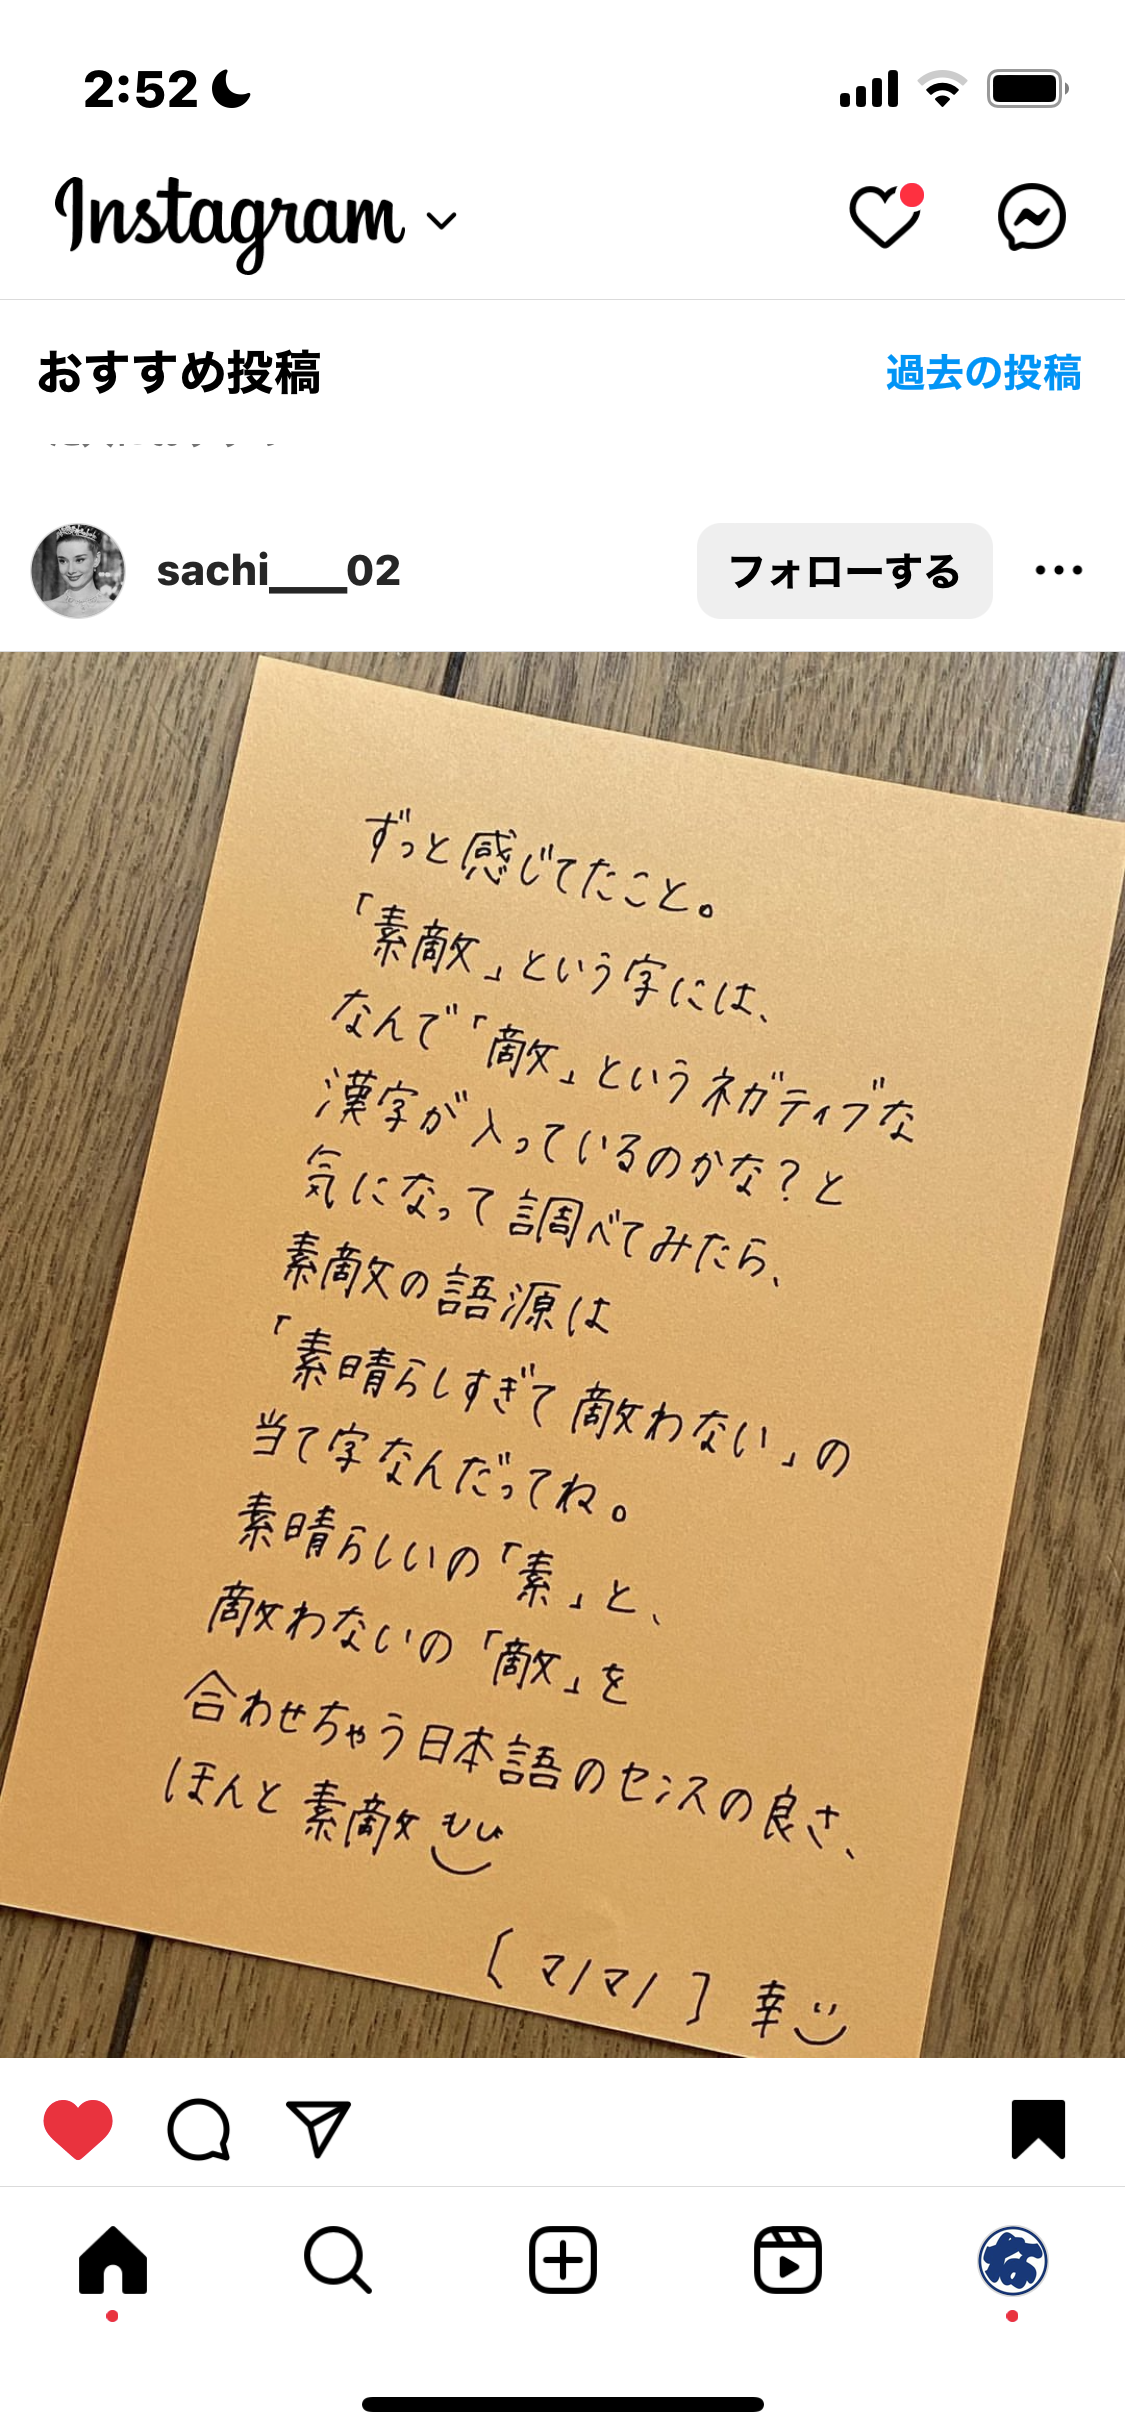 2:52
Instagram
おすすめ投稿
過去の投稿
sachi____02
フォローする
ずっと感じてたこと。
「素敵」という字には、
なんで「敵」というネガティブな
漢字が入っているのかな?と
気になって調べてみたら、
素敵の語源は
「素晴らしすぎて敵わない」の
当て字なんだってね。
素晴らしいの「素」と、
敵わないの「敵」を
合わせちゃう日本語のセンスの良さ、
ほんと素敵
[マノマノ] 幸